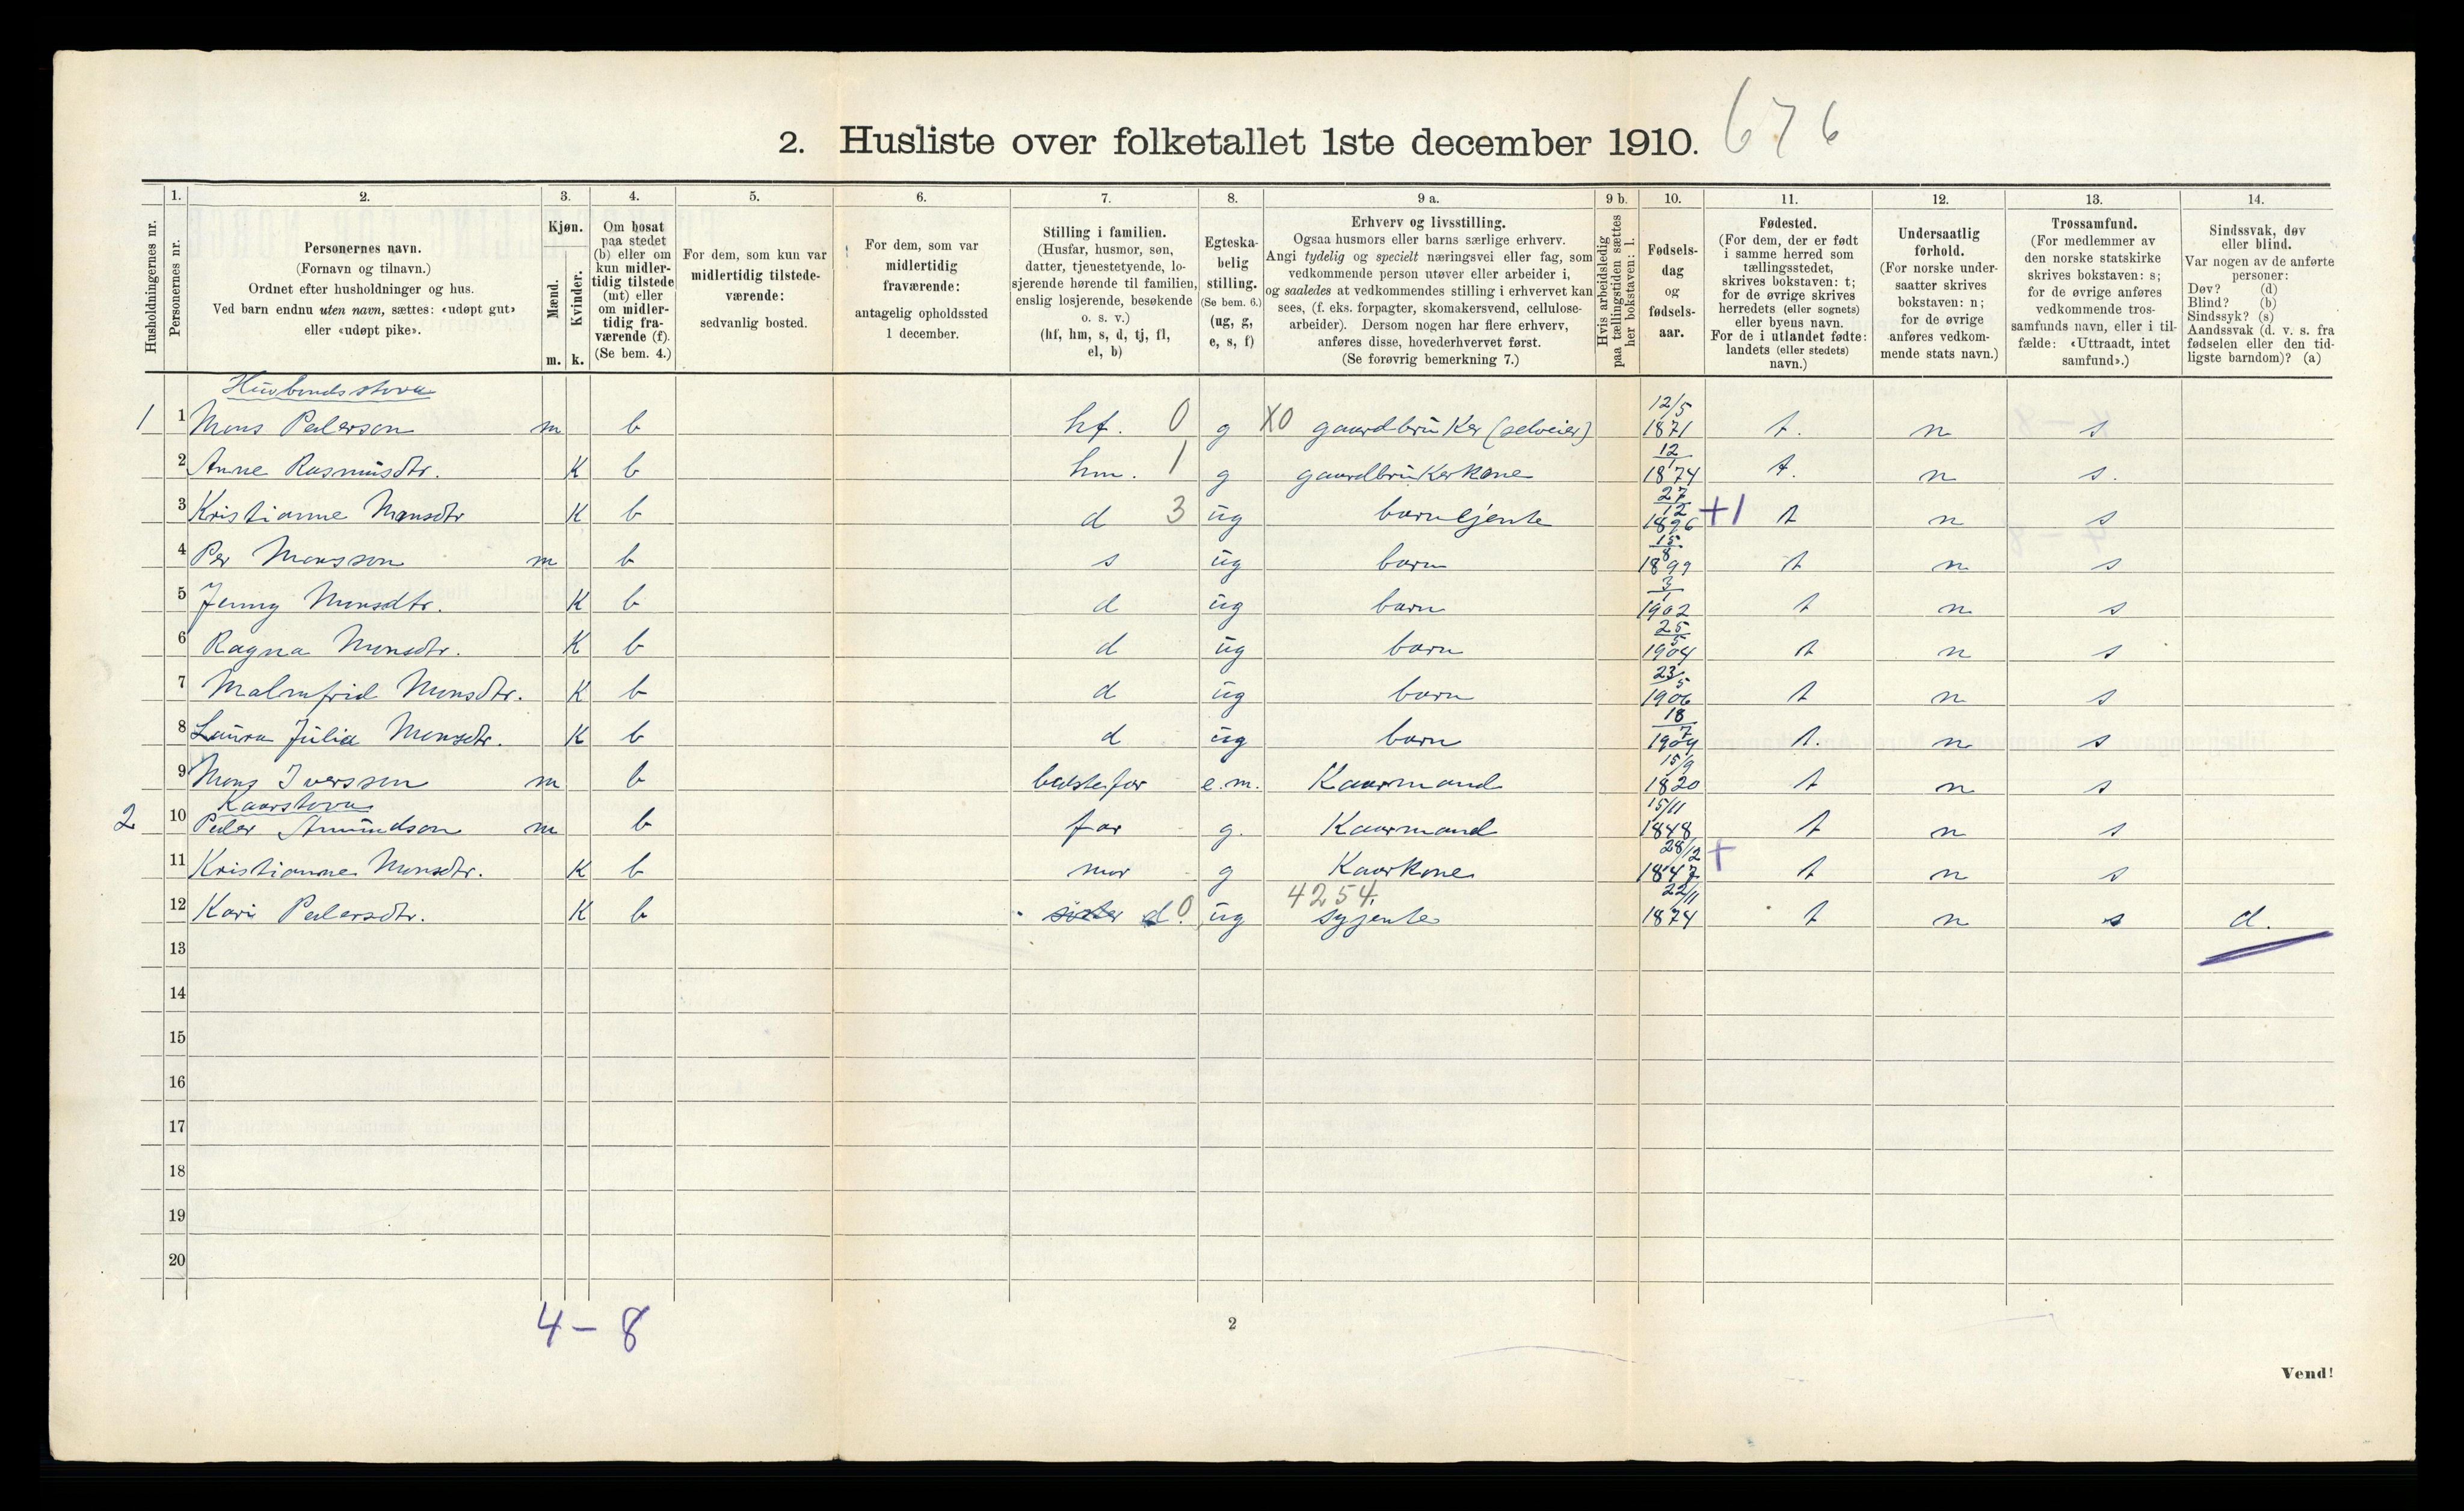 2. Husliste over folketallet 1ste december 1910. 676
Husholdningernes nr.
Personernes nr.
1. 2. 3. 4. 5. 6. 7. 8. 9 a. 9 b. 10. 11. 12. 13. 14.
Personernes navn.
(Fornavn og tilnavn.)
Ordnet efter husholdninger og hus.
Ved barn endnu uten navn, sættes: «udøpt gut»
eller «udøpt pike».
Kjøn.
Mænd.
Kvinder.
m. k.
Om bosat
paa stedet
(b) eller om
kun midler-
tidig tilstede
(mt) eller
om midler-
tidig fra-
værende (f).
(Se bem. 4.)
For dem, som kun var
midlertidig tilstede-
værende:
sedvanlig bosted.
For dem, som var
midlertidig
fraværende:
antagelig opholdssted
1 december.
Stilling i familien.
(Husfar, husmor, søn,
datter, tjenestetyende, lo-
sjerende hørende til familien,
enslig losjerende, besøkende
o. s. v.)
(hf, hm, s, d, tj, fl,
el, b)
Egteska-
belig
stilling.
(Se bem. 6.)
(ug, g,
e, s, f)
Erhverv og livsstilling.
Ogsaa husmors eller barns særlige erhverv.
Angi tydelig og specielt næringsvei eller fag, som
vedkommende person utøver eller arbeider i,
og saaledes at vedkommendes stilling i erhvervet kan
sees, (f. eks. forpagter, skomakersvend, cellulose-
arbeider). Dersom nogen har flere erhverv,
anføres disse, hovederhvervet først.
(Se forøvrig bemerkning 7.)
Hvis arbeidsledig
paa tællingstiden sættes
her bokstaven: l.
Fødsels-
dag
og
fødsels-
aar.
Fødested.
(For dem, der er født
i samme herred som
tællingsstedet,
skrives bokstaven: t;
for de øvrige skrives
herredets (eller sognets)
eller byens navn.
For de i utlandet fødte:
landets (eller stedets)
navn.)
Undersaatlig
forhold.
(For norske under-
saatter skrives
bokstaven: n;
for de øvrige
anføres vedkom-
mende stats navn.)
Trossamfund.
(For medlemmer av
den norske statskirke
skrives bokstaven: s;
for de øvrige anføres
vedkommende tros-
samfunds navn, eller i til-
fælde: «Uttraadt, intet
samfund».)
Sindssvak, døv
eller blind.
Var nogen av de anførte
personer:
Døv? (d)
Blind? (b)
Sindssyk? (s)
Aandssvak (d. v. s. fra
fødselen eller den tid-
ligste barndom)? (a)
Husbondsstova
1 1 Mons Pederson m b hf. 0 g X0 gaardbruker (selveier) 12/5 1871 t. n s
2 Anne Rasmusdtr. K b hm. 1 g gaardbrukerkone 12/1 1874 t. n s.
3 Kristianne Monsdtr K b d 3 ug 27/12 1896 +1 t n s
4 Per Monsson m b s ug barn 15/8 1899 t n s
5 Jenny Monsdtr. K b d ug barn 3/1 1902 t n s
6 Ragna Monsdtr. K b d ug barn 25/5 1904 t n s
7 Malmfrid Monsdtr. K b d ug barn 23/5 1906 t n s
8 Laura Julia Monsdtr. K b d ug barn 18/7 1909 t. n s
9 Mons Iversson m b bedstefar e.m. Kaarmand 15/9 1820 t n s
Kaarstova
2 10 Peder Amundson m b far g. Kaarmand 15/11 1848 t n s
11 Kristianne Monsdtr. K b mor g Kaarkone 28/12 1847 + t n s
4254.
12 Kari Pedersdtr. K b sister d 0 ug syjente 22/11 1874 t n s d.
13
14
15
16
17
18
19
20
4 – 8
2
Vend!